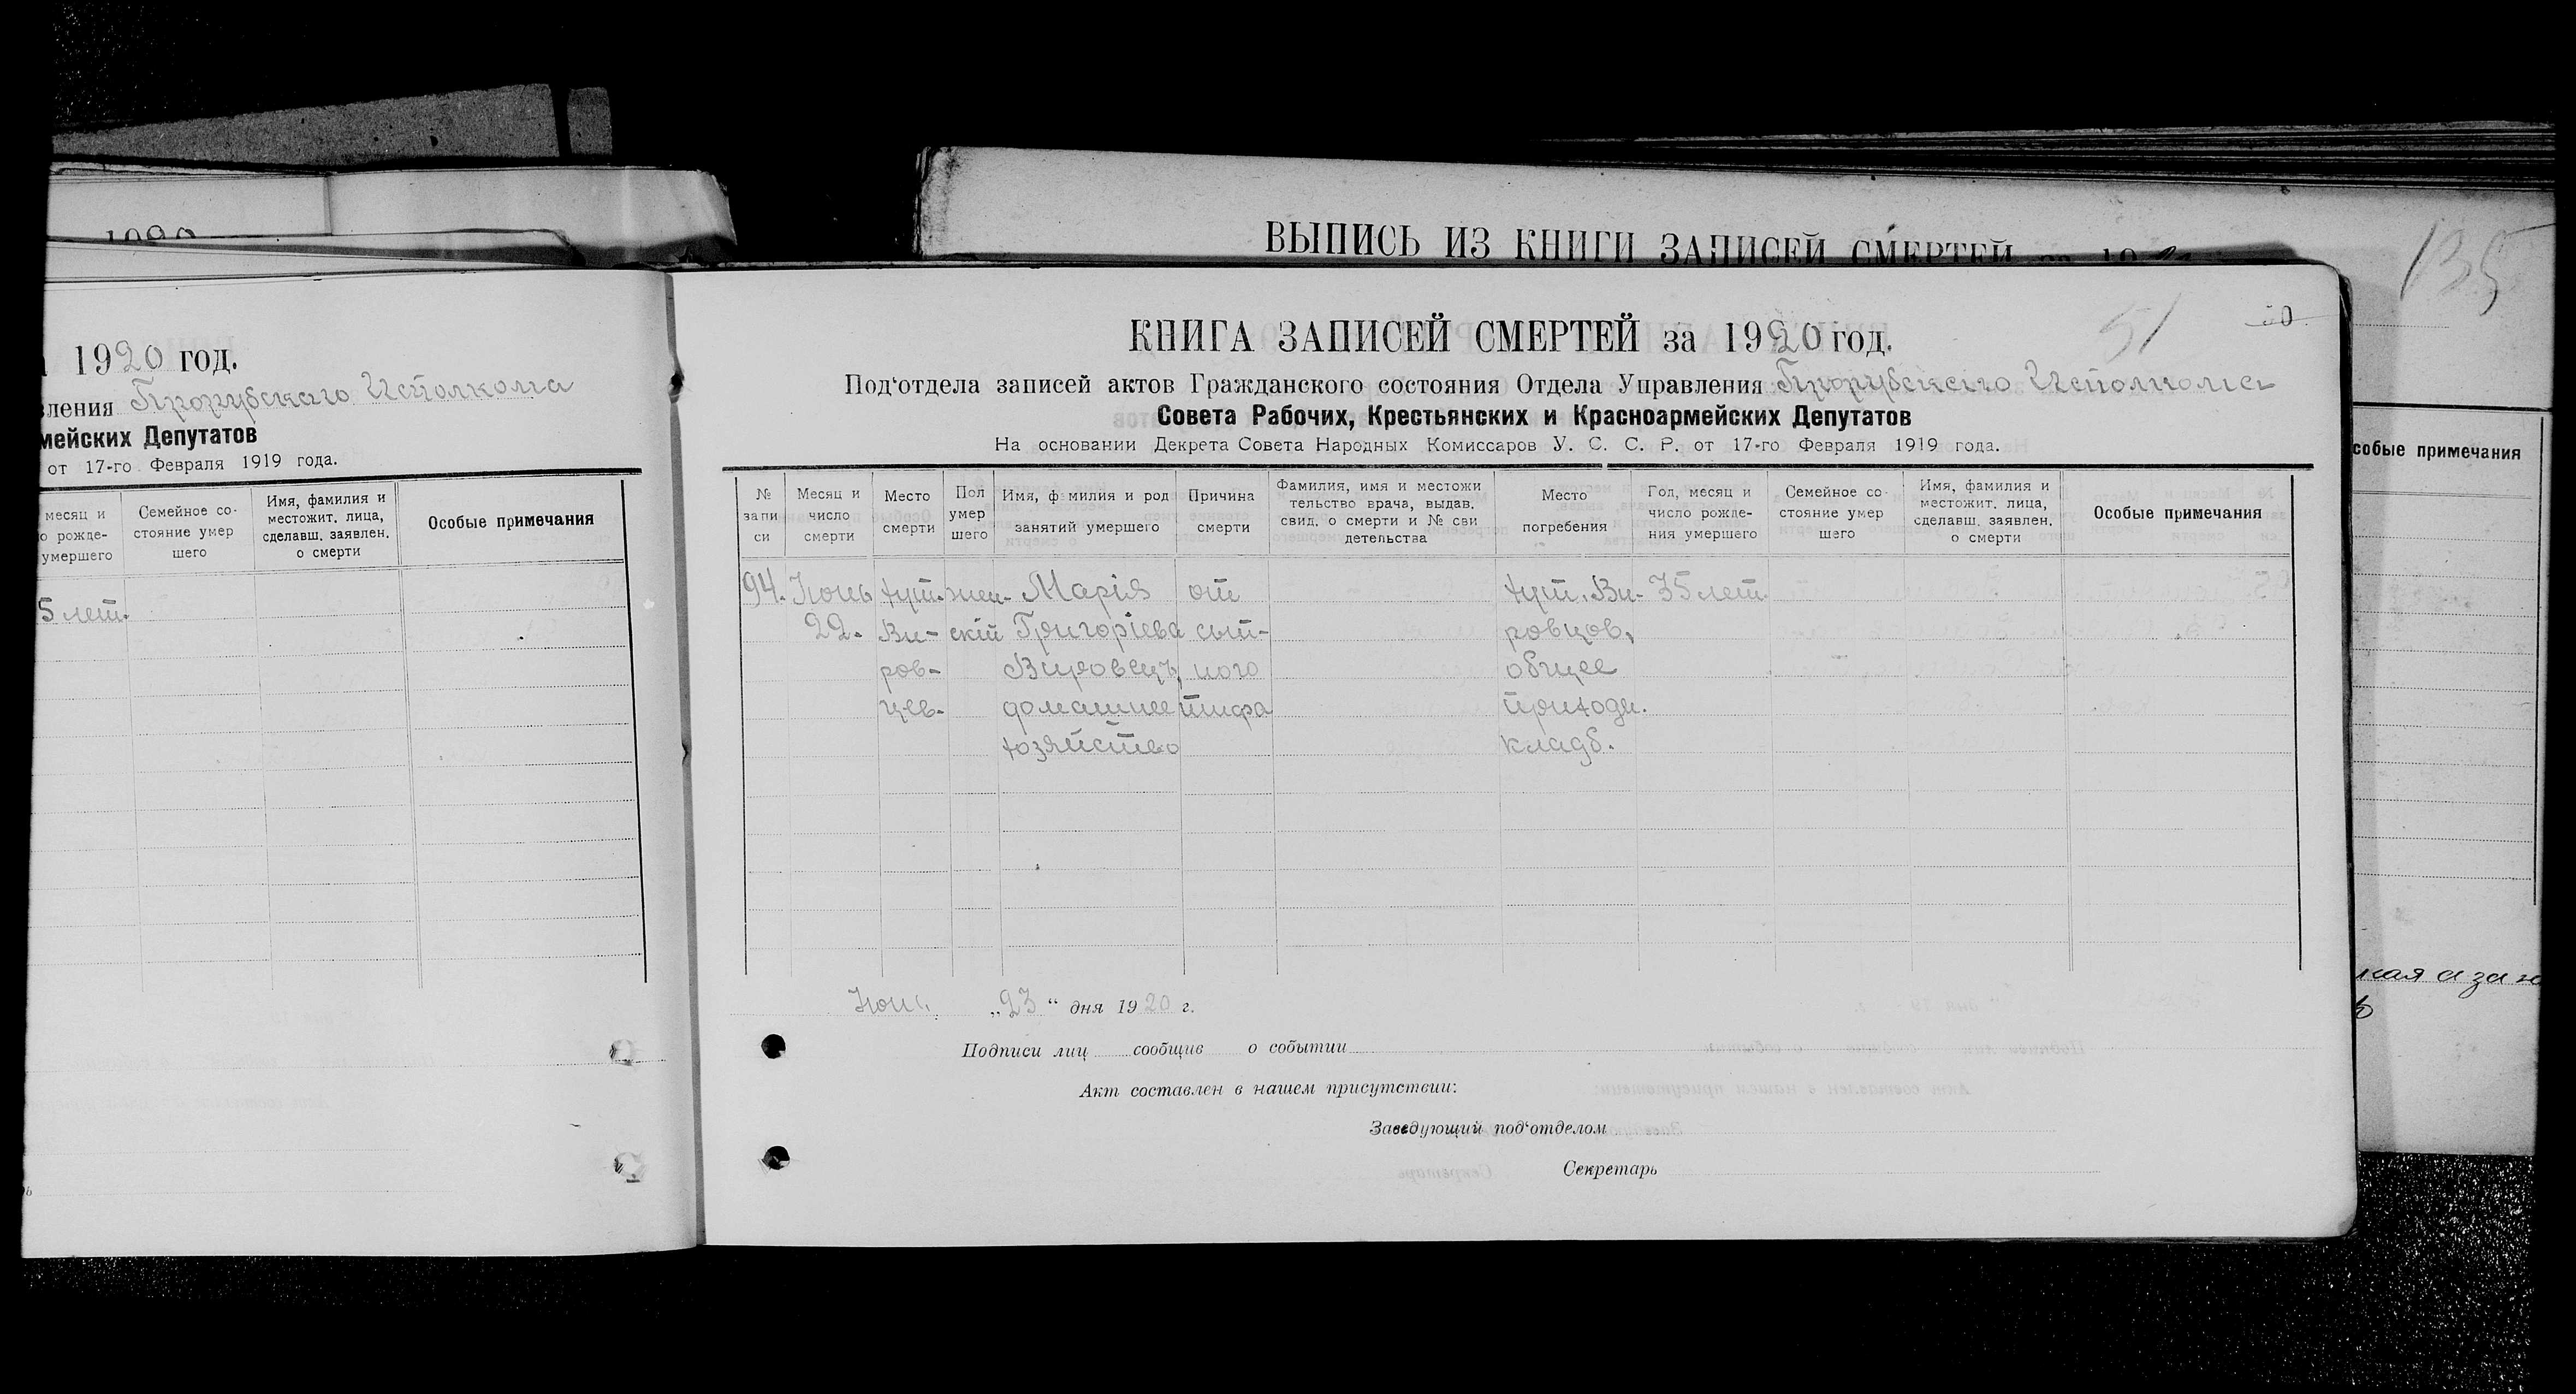 1920 год.
вления Прорубскаго Исполкома
мейских Депутатов
от 17-го Февраля 1919 года.
месяц и
о рожде-
умершего
Семейное со-
стояние умер
шего
Имя, фамилия и
местожит. лица,
сделавш. заявлен.
о смерти
Особые примечания
5 лет.
ВЫПИСЬ ИЗ КНИГИ ЗАПИСЕЙ СМЕРТЕЙ
135
собые примечания
КНИГА ЗАПИСЕЙ СМЕРТЕЙ за 1920 год.
51
Под‘отдела записей актов Гражданского состояния Отдела Управления Прорубскаго Исполкома
Совета Рабочих, Крестьянских и Красноармейских Депутатов
На основании Декрета Совета Народных Комиссаров У. С. С. Р. от 17-го Февраля 1919 года.
№
запи
си
Месяц и
число
смерти
Место
смерти
Пол
умер
шего
Имя, фамилия и род
занятий умершего
Причина
смерти
Фамилия, имя и местожи
тельство врача, выдав.
свид. о смерти и № сви
детельства
Место
погребения
Год, месяц и
число рожде-
ния умершего
Семейное со-
стояние умер
шего
Имя, фамилия и
местожит. лица,
сделавш. заявлен.
о смерти
Особые примечания
94.
Июнь
22.
хут.
Ви-
ров-
цев.
жен-
скій
Марія
Григоріева
Вировецъ,
домашнее
хозяйство
от
сып-
ного
тифа
хут. Ви-
ровцов,
общее
приходн.
кладб.
35 лет.
Июня „23“ дня 1920 г.
Подписи лиц сообщив о событии
Акт составлен в нашем присутствии:
Заведующий под‘отделом
Секретарь